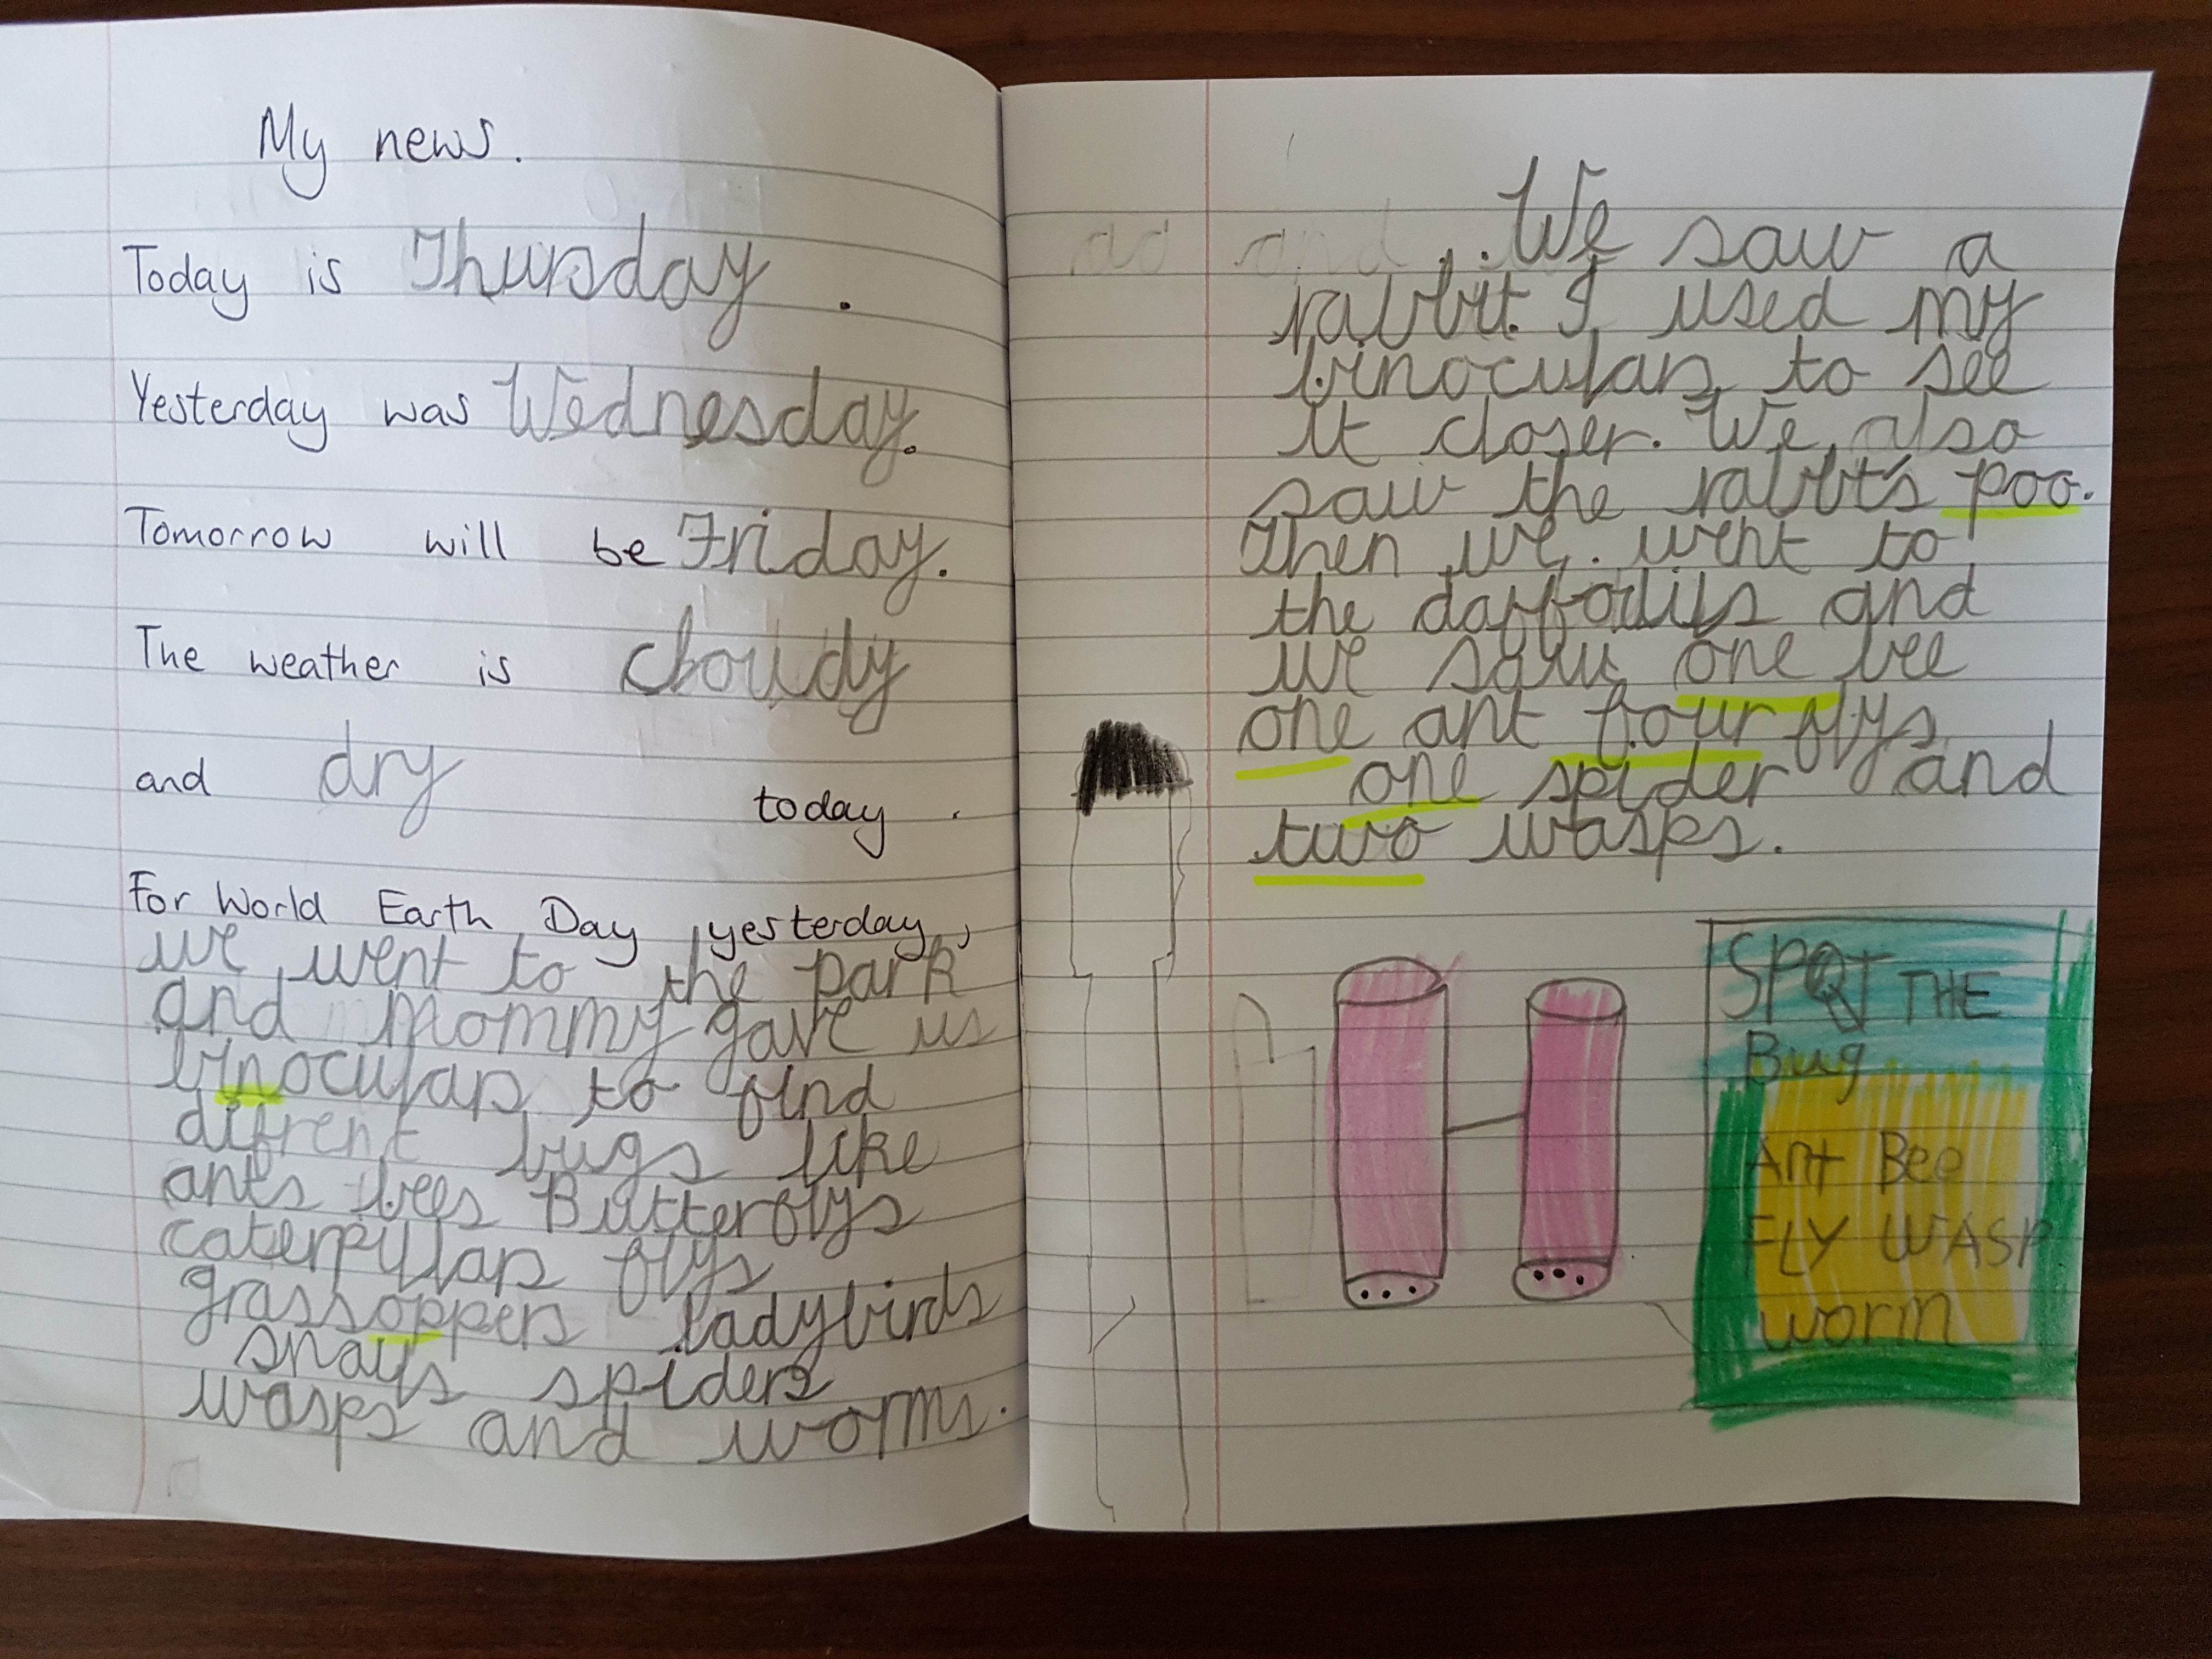 My news.
Today is Thursday.
Yesterday was Wednesday.
Tomorrow will be Friday.
The weather is cloudy
and dry today.
For World Earth Day yesterday,
we went to the park
and Mommy gave us
binoculars to find
difrent bugs like
ants bees Butterflys
caterpillars flys
grassoppers ladybirds
snayls spiders
wasps and worms.
We saw a
rabbit. I used my
binoculars to see
it closer. We also
saw the rabbit's poo.
Then we went to
the daffodils and
we saw one bee
one ant four flys
one spider and
two wasps.
SPOT THE
Bug
Ant Bee
FLY WASP
worm